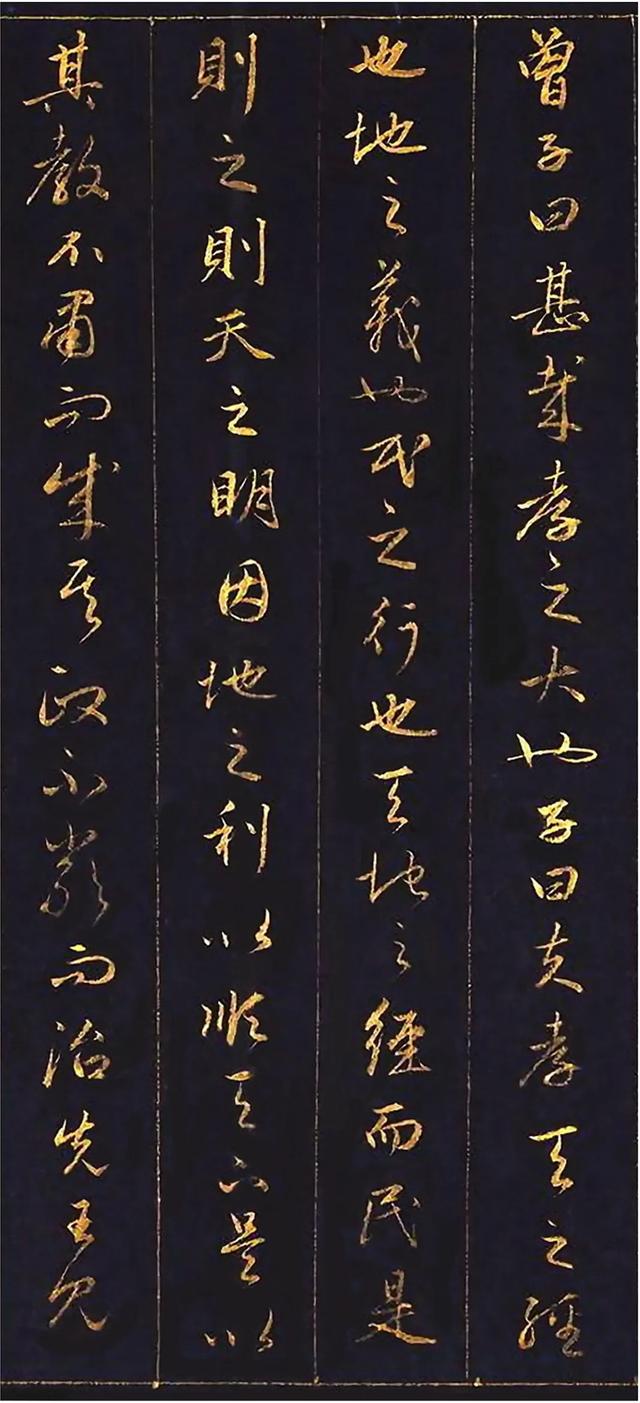 曾子曰甚哉孝之大也子曰夫孝天之經
也地之義也民之行也天地之經而民是
則之則天之明因地之利以順天下是以
其教不肅而成其政不嚴而治先王見